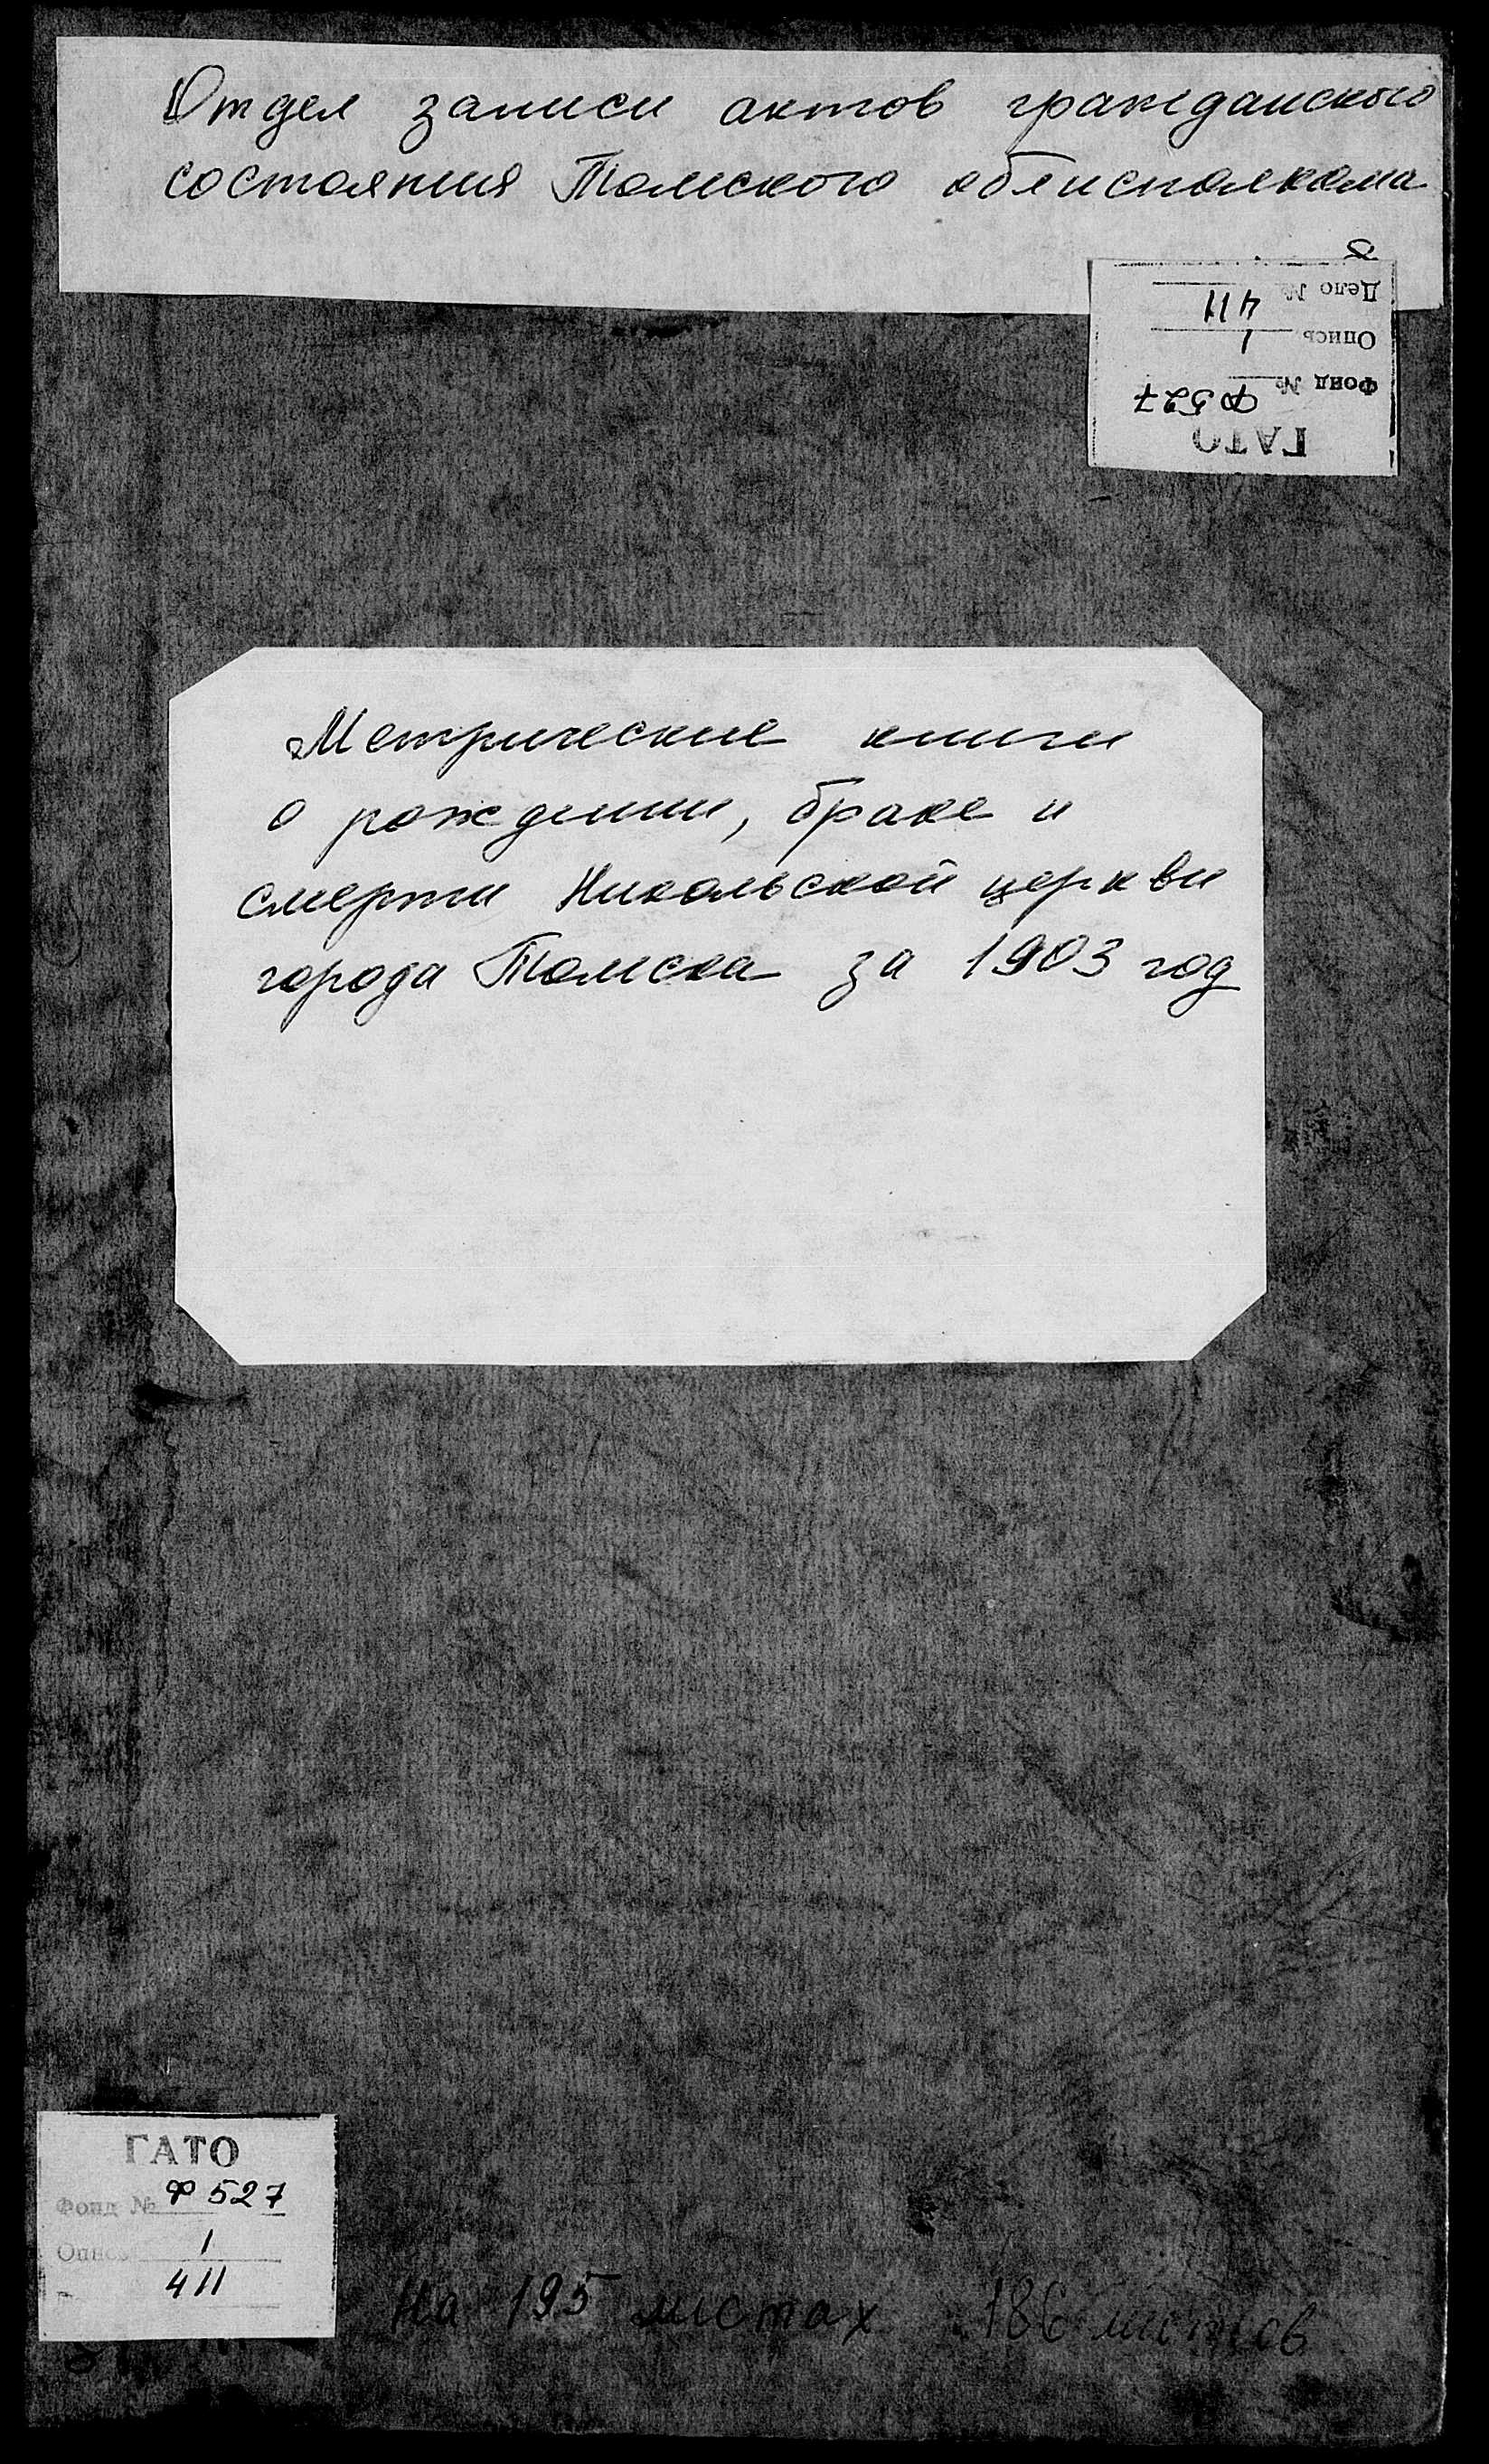 Отдел записи актов гражданского
состояния Томского облисполкома
ГАТО
Фонд № Ф 527
Опись 1
Дело № 411
Метрические книги
о рождении, браке и
смерти Никольской церкви
города Томска за 1903 год
ГАТО
Фонд № Ф 527
Опись 1
411
На 195 листах 186 листов